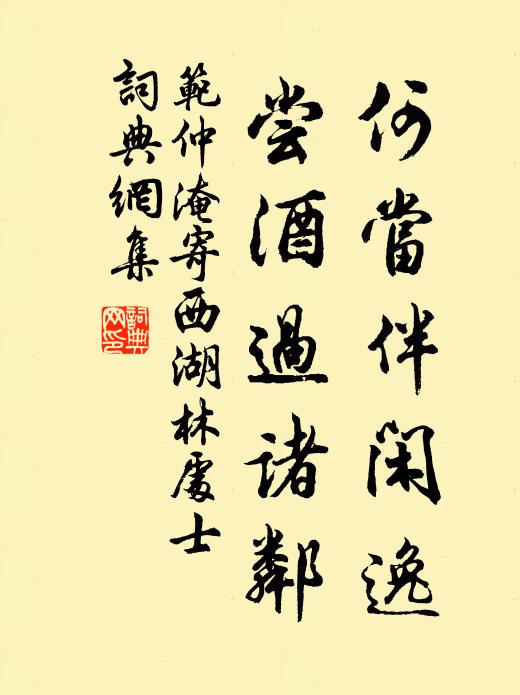 何當伴閑逸
嘗酒過諸鄰
範仲淹寄西湖林處士
詞典網集
詞典
网印